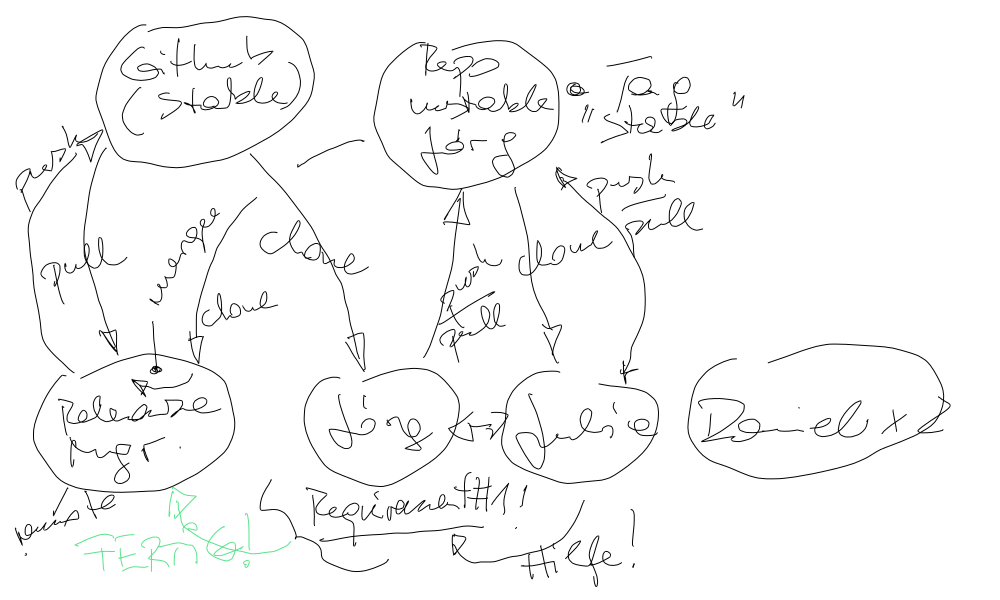 Github
(stable)
Repo
unstable
Jörg
Tag
"stable"
push
pull
merge
clone
clone
push
pull
clone
push
pull
Release
mgr.
Jörg
Julia
Daniel x 2
remote
Requirement #1!
FERTIG!
Hilfe!